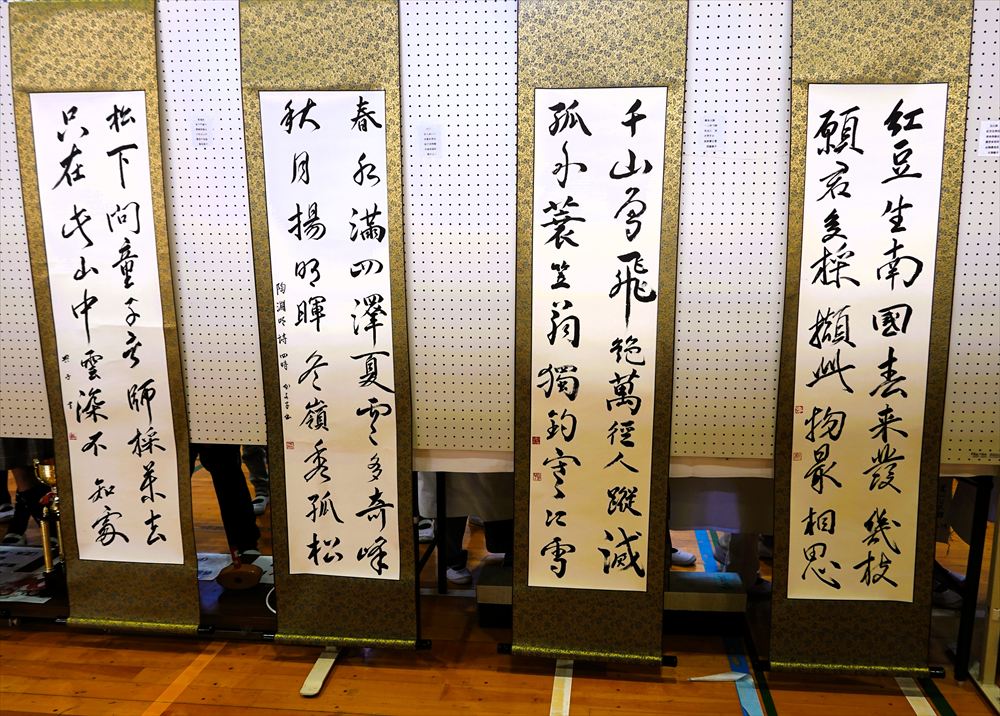 紅豆生南國春来發幾枝
願君多採擷此物最相思
千山鳥飛絶萬徑人蹤滅
孤舟蓑笠翁獨釣寒江雪
春水満四澤夏雲多奇峰
秋月揚明暉冬嶺秀孤松
陶淵明詩 四時
松下問童子言師採薬去
只在此山中雲深不知處